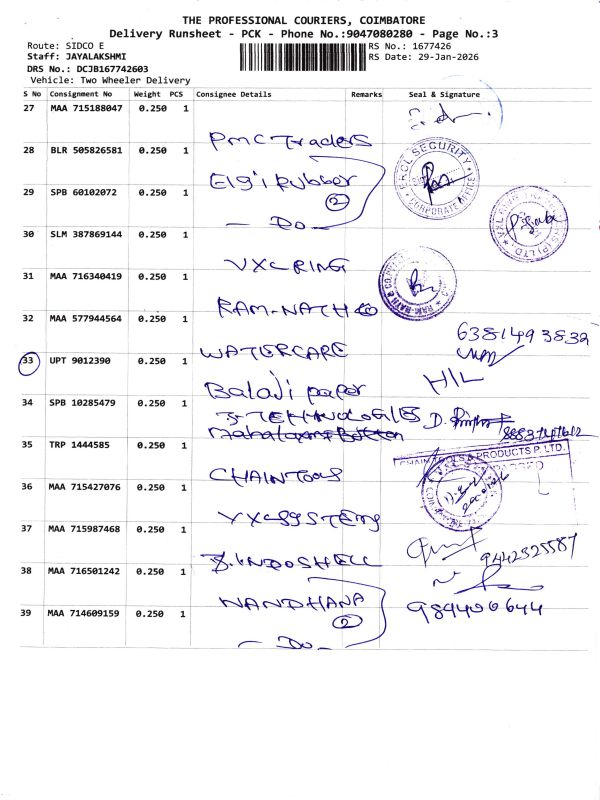 THE PROFESSIONAL COURIERS, COIMBATORE
Delivery Runsheet - PCK - Phone No.:9047080280 - Page No.:3
Route: SIDCO E
Staff: JAYALAKSHMI
DRS No.: DCJB167742603
Vehicle: Two Wheeler Delivery
RS No.: 1677426
RS Date: 29-Jan-2026
S No Consignment No Weight PCS Consignee Details Remarks Seal & Signature
27 MAA 715188047 0.250 1
PMC Traders
28 BLR 505826581 0.250 1
Elgi Rubber
SECURITY
CORPORATE OFFICE
29 SPB 60102072 0.250 1
2
- Do -
30 SLM 387869144 0.250 1
VXL RING
31 MAA 716340419 0.250 1
RAM-NATH CO
32 MAA 577944564 0.250 1
WATERCARE
6381493832
33 UPT 9012390 0.250 1
Balaji paper
H/L
34 SPB 10285479 0.250 1
TECHNOLOGIES
35 TRP 1444585 0.250 1
CHAINTOOLS
CHAINTOOLS & PRODUCTS P. LTD.
36 MAA 715427076 0.250 1
VXL SYSTEMS
37 MAA 715987468 0.250 1
INDOSHELL
9442325587
38 MAA 716501242 0.250 1
NANDHANA
984400644
39 MAA 714609159 0.250 1
2
- Do -